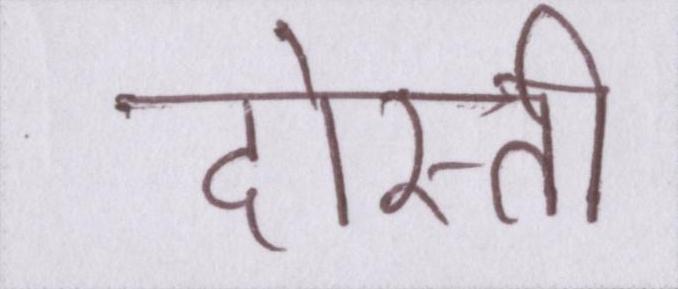 दोस्ती